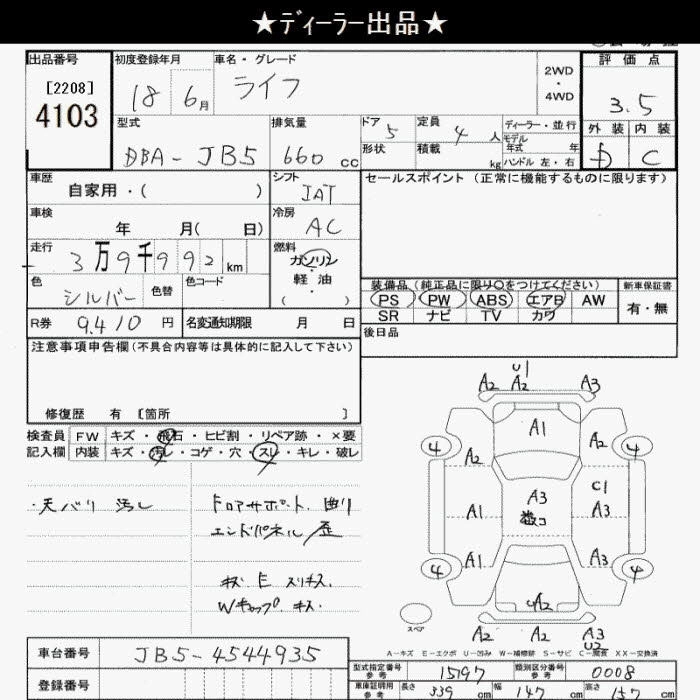 ★ディーラー出品★
出品番号
[2208]
4103
初度登録年月
18 6月
車名・グレード
ライフ
2WD
・
4WD
評価点
3.5
外装 内装
D C
型式
DBA-JB5
排気量
660 cc
ドア 5
形状
定員 4 人
積載 kg
ディーラー・並行
モデル年式 年
ハンドル 左・右
車歴
自家用・( )
シフト
IAT
セールスポイント (正常に機能するものに限ります)
車検
年 月( 日)
冷房
AC
走行
3万9千992 km
燃料
ガソリン
・
軽油
( )
色
シルバー
色替
色コード
装備品 (純正品に限り○をつけてください)
新車保証書
PS PW ABS エアB AW
有・無
SR ナビ TV カワ
R券 9410 円
名変通知期限 月 日
後日品
注意事項申告欄 (不具合内容等は具体的に記入して下さい)
修復歴 有 [箇所 ]
検査員
記入欄
FW キズ・飛石・ヒビ割・リペア跡・×要
内装 キズ・汚レ・コゲ・穴・スレ・キレ・破レ
・天バリ 汚レ
ドロアサポート 曲り
エンドパネル/歪
キズ E スリキズ
Wキャップ キズ
U1
A2 A2 A3
A1
4 A2 A2 4
C1
A1 A3 A3
A1 A3
4 4
A2
スペア
A2 A2 A3
U2
A-キズ E-エクボ U-凹み W-補修跡 S-サビ C-腐食 XX-交換済
車台番号 JB5-4544935
登録番号
型式指定番号
参考
15197
類別区分番号
参考
0008
車庫証明用
参考
長さ 339 cm 幅 147 cm 高さ 157 cm